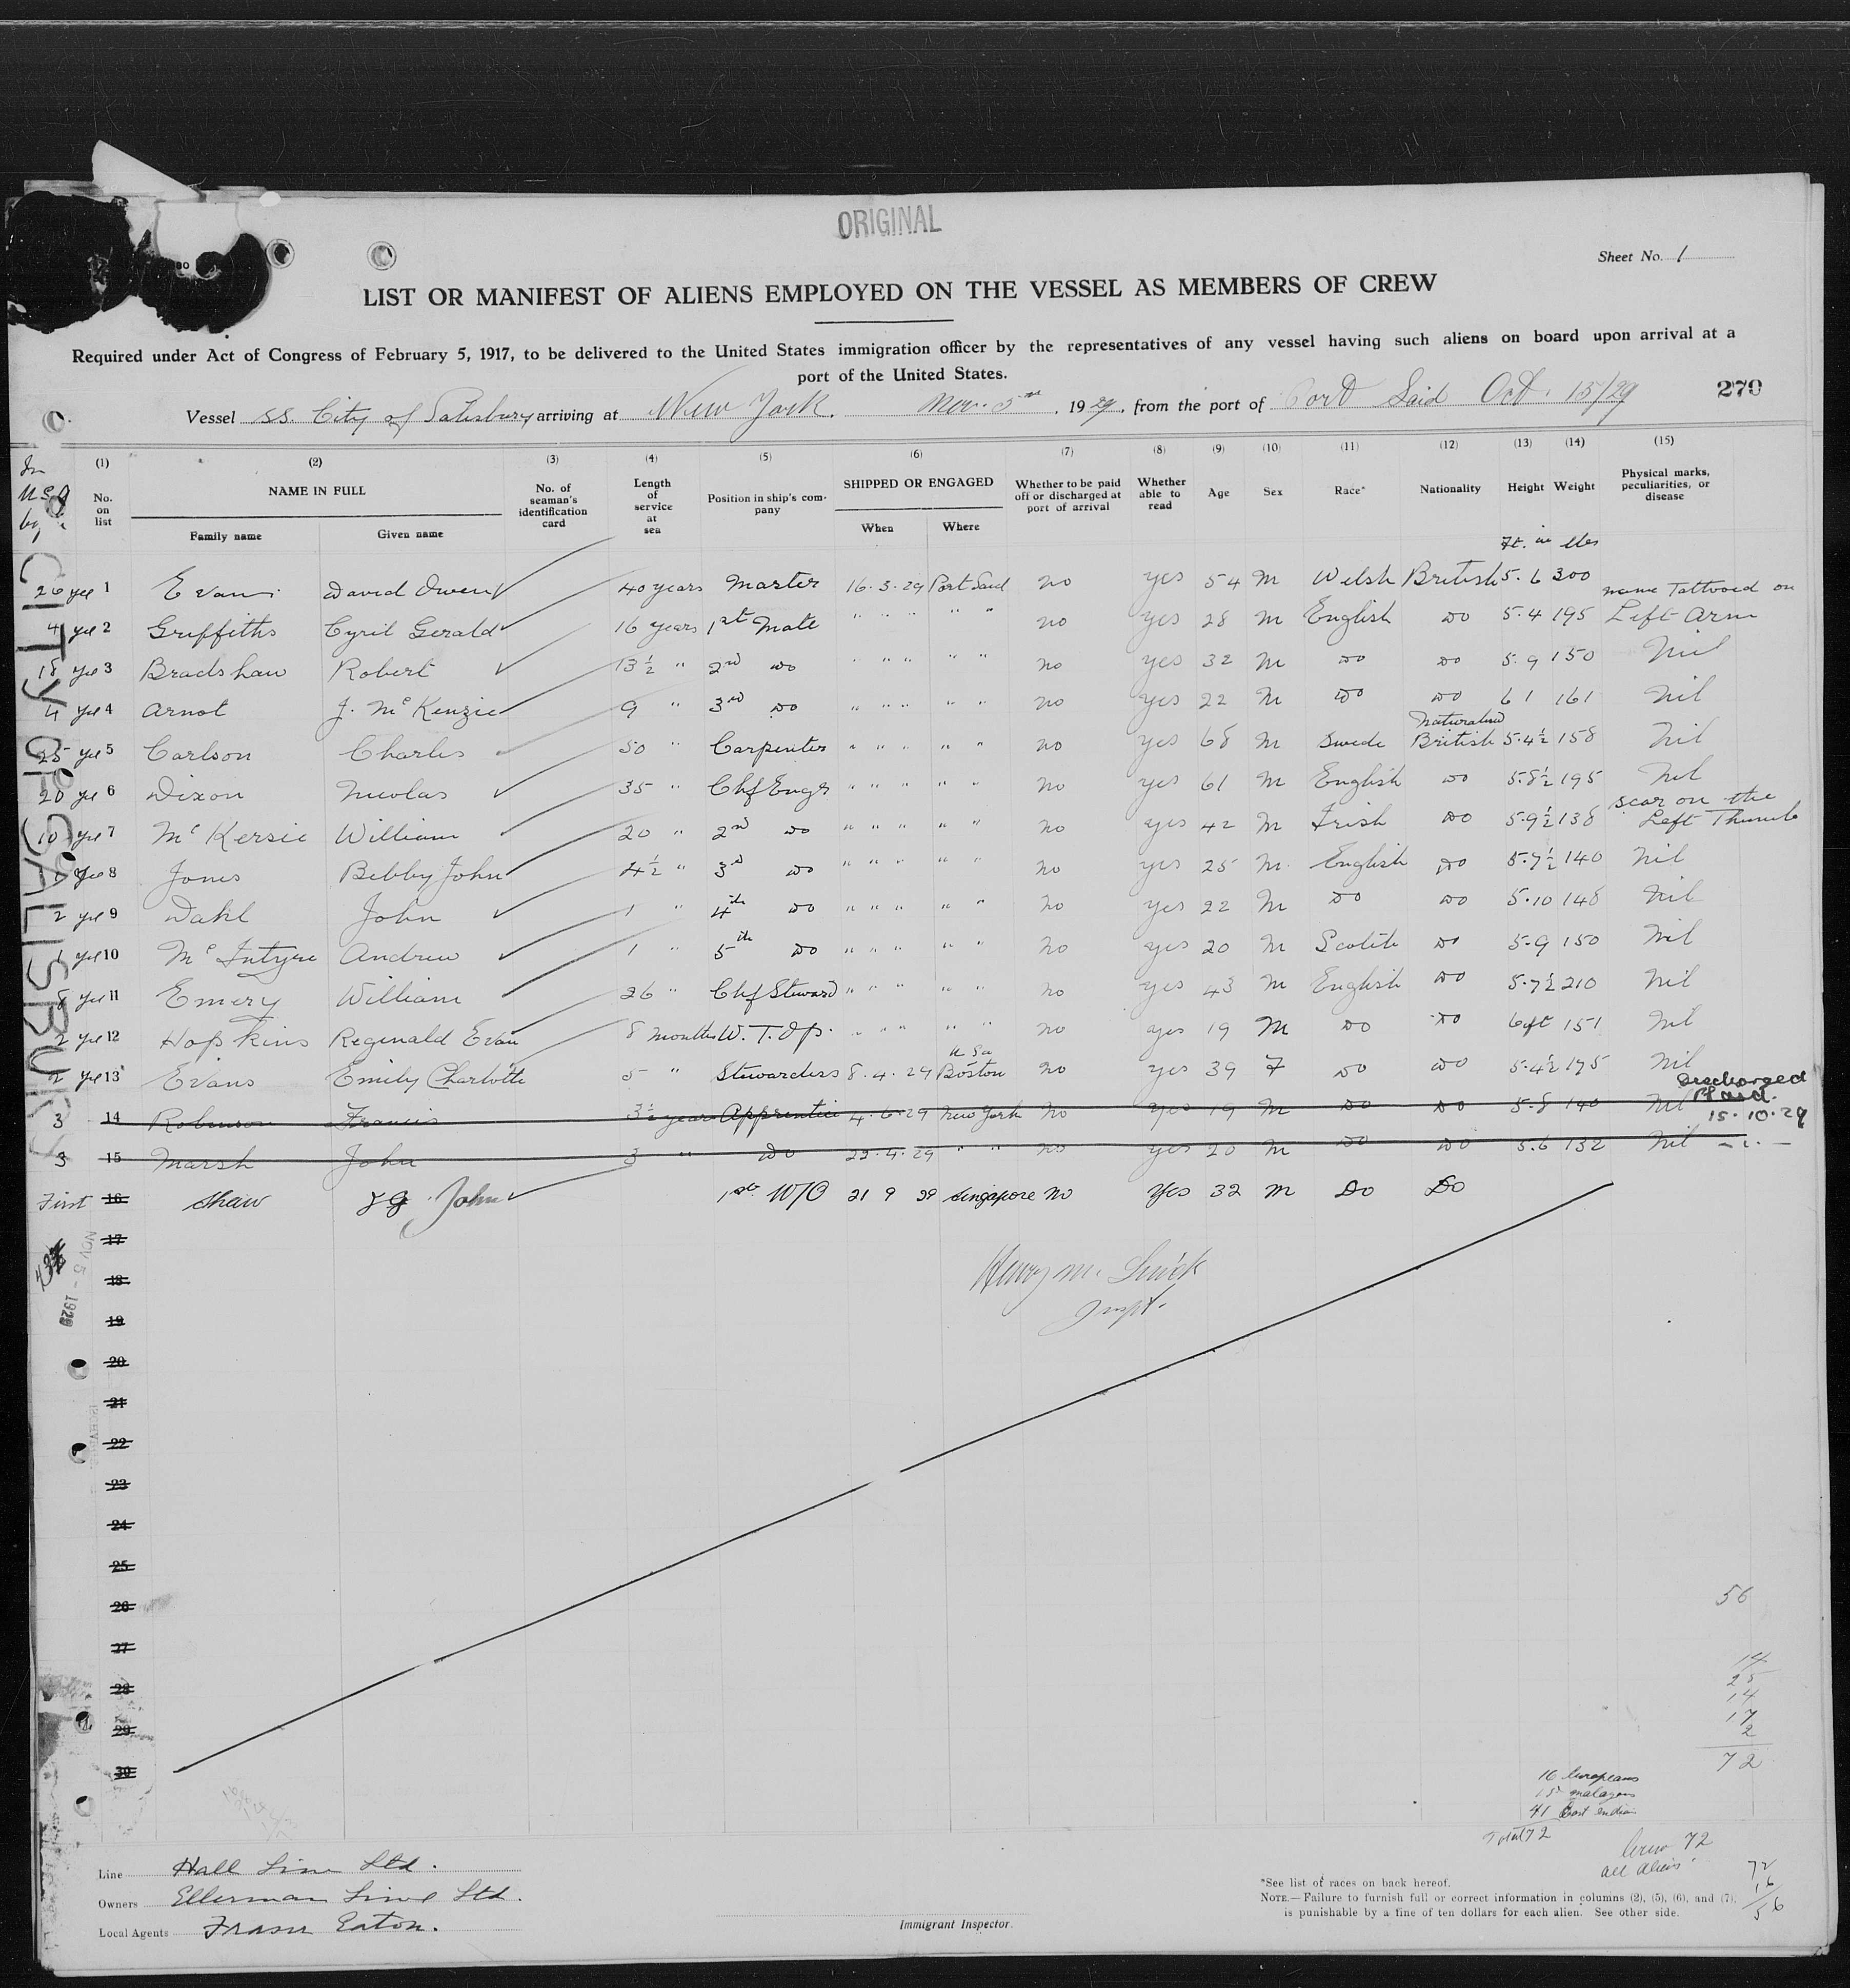 ORIGINAL
Sheet No. 1
LIST OR MANIFEST OF ALIENS EMPLOYED ON THE VESSEL AS MEMBERS OF CREW
Required under Act of Congress of February 5, 1917, to be delivered to the United States immigration officer by the representatives of any vessel having such aliens on board upon arrival at a
port of the United States.
270
Vessel SS. City of Salisbury arriving at New York. Nov. 5th, 1929, from the port of Port Said Oct. 15/29
(1) (2) (3) (4) (5) (6) (7) (8) (9) (10) (11) (12) (13) (14) (15)
In U.S.A by
No. on list
NAME IN FULL
Family name
Given name
No. of seaman's identification card
Length of service at sea
Position in ship's company
SHIPPED OR ENGAGED
When
Where
Whether to be paid off or discharged at port of arrival
Whether able to read
Age
Sex
Race*
Nationality
Height
Weight
Physical marks, peculiarities, or disease
Ft. in lbs
CITY OF SALISBURY
26 yes 1 Evans David Owen 40 years Master 16.3.29 Port Said no yes 54 M Welsh British 5.6 300
4 yes 2 Griffiths Cyril Gerald 16 years 1st Mate " " " " " no yes 28 M English Do 5.4 195 name Tattooed on Left Arm
18 yes 3 Bradshaw Robert 13½ " 2nd Do " " " " " no yes 32 M Do Do 5.9 150 Nil
4 yes 4 Arnot J. McKenzie 9 " 3rd Do " " " " " no yes 22 M Do Do 6 1 161 Nil
25 yes 5 Carlson Charles 50 " Carpenter " " " " " no yes 68 M Swede Naturalised British 5.4½ 158 Nil
20 yes 6 Dixon Nicolas 35 " Chf Engr " " " " " no yes 61 M English Do 5.8½ 195 Nil
10 yes 7 McKersie William 20 " 2nd Do " " " " " no yes 42 M Irish Do 5.9½ 138 scar on the Left Thumb
yes 8 Jones Bebby John 4½ " 3rd Do " " " " " no yes 25 M English Do 5.7½ 140 Nil
2 yes 9 Dahl John 1 " 4th Do " " " " " no yes 22 M Do Do 5.10 148 Nil
1 yes 10 McIntyre Andrew 1 " 5th Do " " " " " no yes 20 M Scotch Do 5.9 150 Nil
8 yes 11 Emery William 26 " Chf Steward " " " " " no yes 43 M English Do 5.7½ 210 Nil
2 yes 12 Hopkins Reginald Evan 8 months W.T.Op. " " " " " no yes 19 M Do Do 6ft 151 Nil
2 yes 13 Evans Emily Charlotte 5 " Stewardess 8.4.29 U Sa Boston no yes 39 F Do Do 5.4½ 175 Nil
3 14 Robinson Francis 3½ years Apprentice 4.6.29 New York no yes 19 M Do Do 5.8 140 Nil Discharged P/Said. 15.10.29
3 15 Marsh John 3 " Do 29.4.29 " " no yes 20 M Do Do 5.6 132 Nil -"-
First 16 Shaw John 1st W/O 21 9 29 Singapore no Yes 32 M Do Do
17
NOV 5 - 1929
18
Henry M.
Inspt.
19
20
21
22
23
24
25
26
56
27
28
29
30
14
25
14
17
2
72
16 Europeans
15 malayans
41 East Indian
Total 72
Crew 72
all aliens
72
16
56
Line Hall Line Ltd.
Owners Ellerman Line Ltd.
Local Agents Fraser Eaton.
Immigrant Inspector.
*See list of races on back hereof.
NOTE.—Failure to furnish full or correct information in columns (2), (5), (6), and (7),
is punishable by a fine of ten dollars for each alien. See other side.